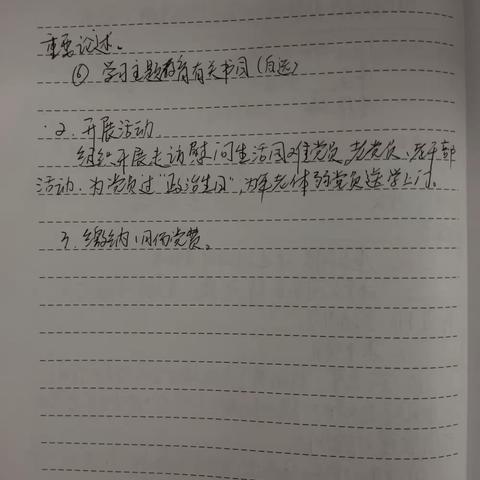 重要论述。
⑥ 学习主题教育有关书目(自选)
2. 开展活动
组织开展走访慰问生活困难党员、老党员、老干部
活动、为党员过“政治生日”,为年老体弱党员送学上门。
3. 缴纳1月份党费。